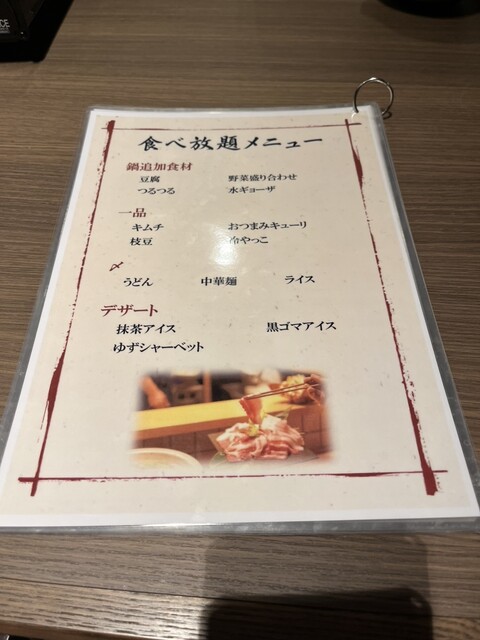 食べ放題メニュー
鍋追加食材
豆腐 野菜盛り合わせ
つるつる 水ギョーザ
一品
キムチ おつまみキューリ
枝豆 冷やっこ
〆
うどん 中華麺 ライス
デザート
抹茶アイス 黒ゴマアイス
ゆずシャーベット